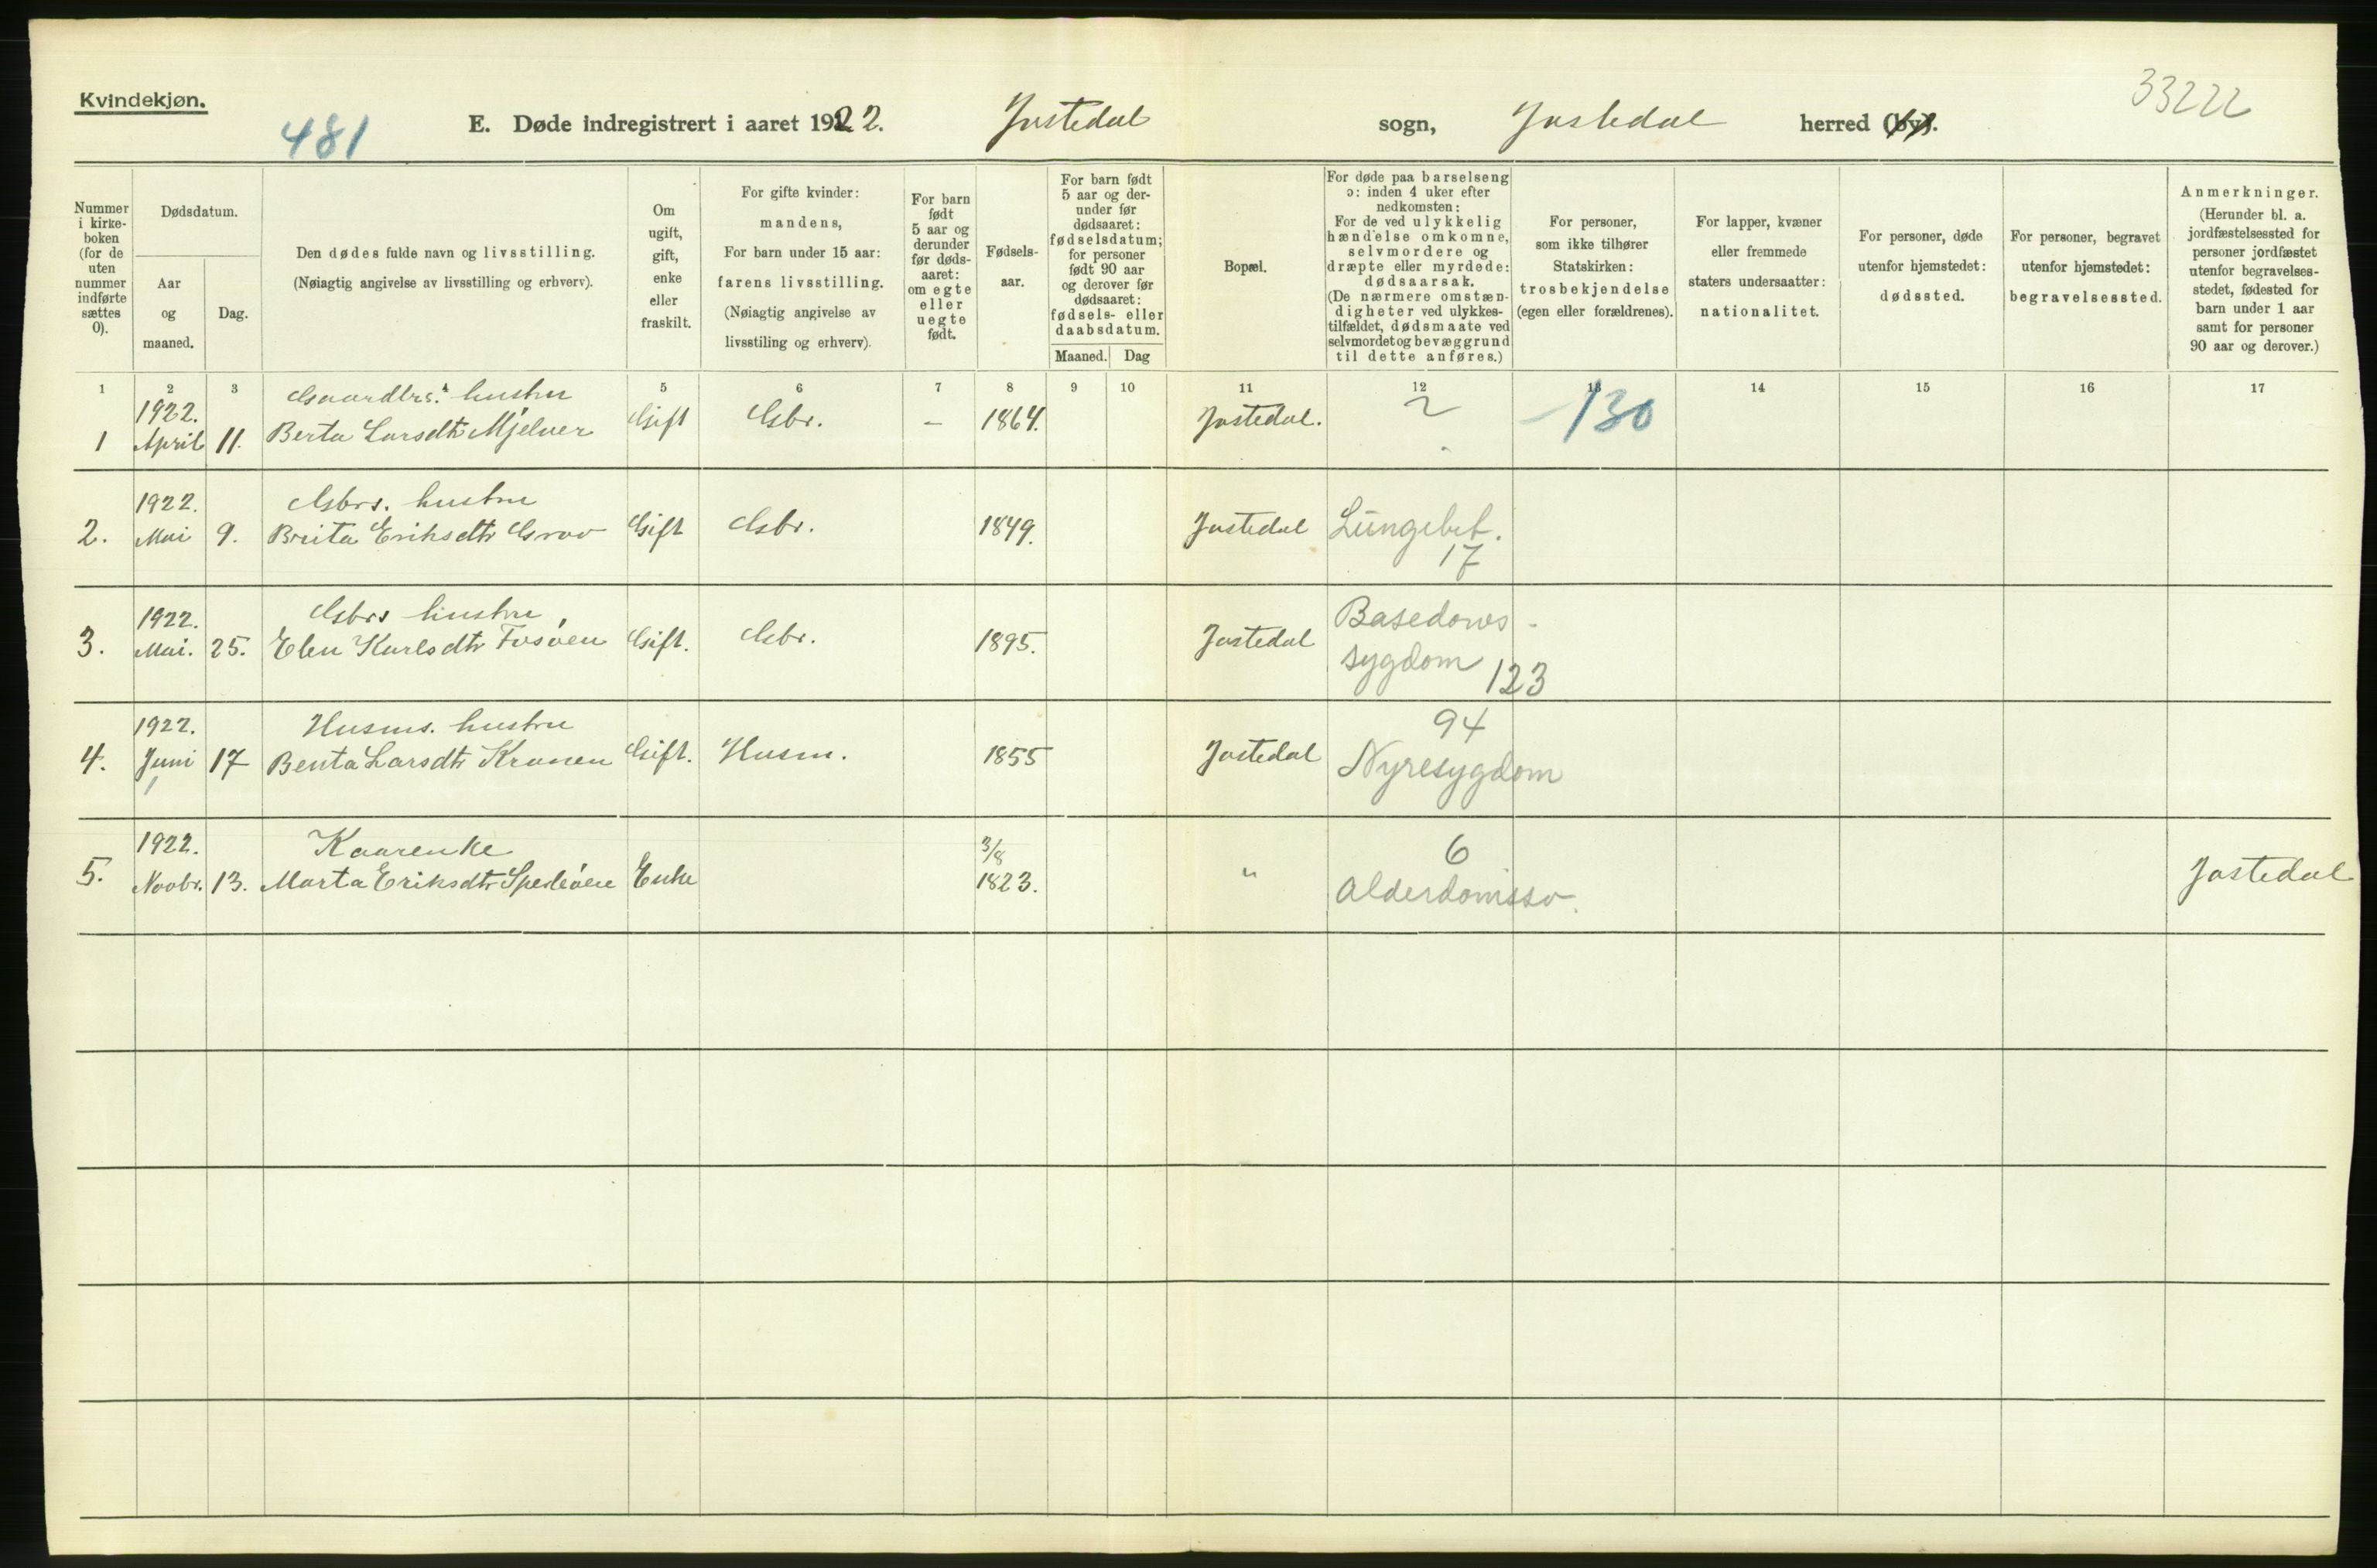 Kvindekjøn.
481
E. Døde indregistrert i aaret 1922. Jostedal sogn, Jostedal herred (by).
33222
Nummer i kirke-boken (for de uten nummer indførte sættes 0).
Dødsdatum.
Aar og maaned.
Dag.
Den dødes fulde navn og livsstilling.
(Nøiagtig angivelse av livsstilling og erhverv).
Om ugift, gift, enke eller fraskilt.
For gifte kvinder: mandens,
For barn under 15 aar: farens livsstilling.
(Nøiagtig angivelse av livsstiling og erhverv).
For barn født 5 aar og derunder før døds-aaret: om egte eller uegte født.
Fødsels-aar.
For barn født 5 aar og der-under før dødsaaret: fødselsdatum; for personer født 90 aar og derover før dødsaaret: fødsels- eller daabsdatum.
Maaned. Dag
Bopæl.
For døde paa barselseng ɔ: inden 4 uker efter nedkomsten:
For de ved ulykkelig hændelse omkomne, selvmordere og dræpte eller myrdede: dødsaarsak.
(De nærmere omstæn-digheter ved ulykkes-tilfældet, dødsmaate ved selvmordet og bevæggrund til dette anføres.)
For personer, som ikke tilhører Statskirken: trosbekjendelse (egen eller forældrenes).
For lapper, kvæner eller fremmede staters undersaatter: nationalitet.
For personer, døde utenfor hjemstedet: dødssted.
For personer, begravet utenfor hjemstedet: begravelsessted.
Anmerkninger.
(Herunder bl. a. jordfæstelsessted for personer jordfæstet utenfor begravelses-stedet, fødested for barn under 1 aar samt for personer 90 aar og derover.)
1 2 3 4 5 6 7 8 9 10 11 12 13 14 15 16 17
1922. Gaardbrs. hustru
1 April 11. Berta Larsdtr Mjelver Gift Gbr. – 1864. Jostedal. 2 130
1922. Gbrs. hustru
2. Mai 9. Brita Eriksdtr Grov Gift Gbr. 1849. Jostedal Lungebet.
17
1922. Gbrs hustru Basedows-
3. Mai. 25. Elen Karlsdtr Fosøen Gift. Gbr. 1895. Jostedal sygdom 123
1922. Husms. hustru 94
4. Juni 17 Benta Larsdtr Kronen Gift. Husm. 1855 Jostedal Nyresygdom
1922. Kaarenke 3/8 6
5. Novbr. 13. Marta Eriksdtr Sperleøen Enke 1823. " Alderdomssv. Jostedal